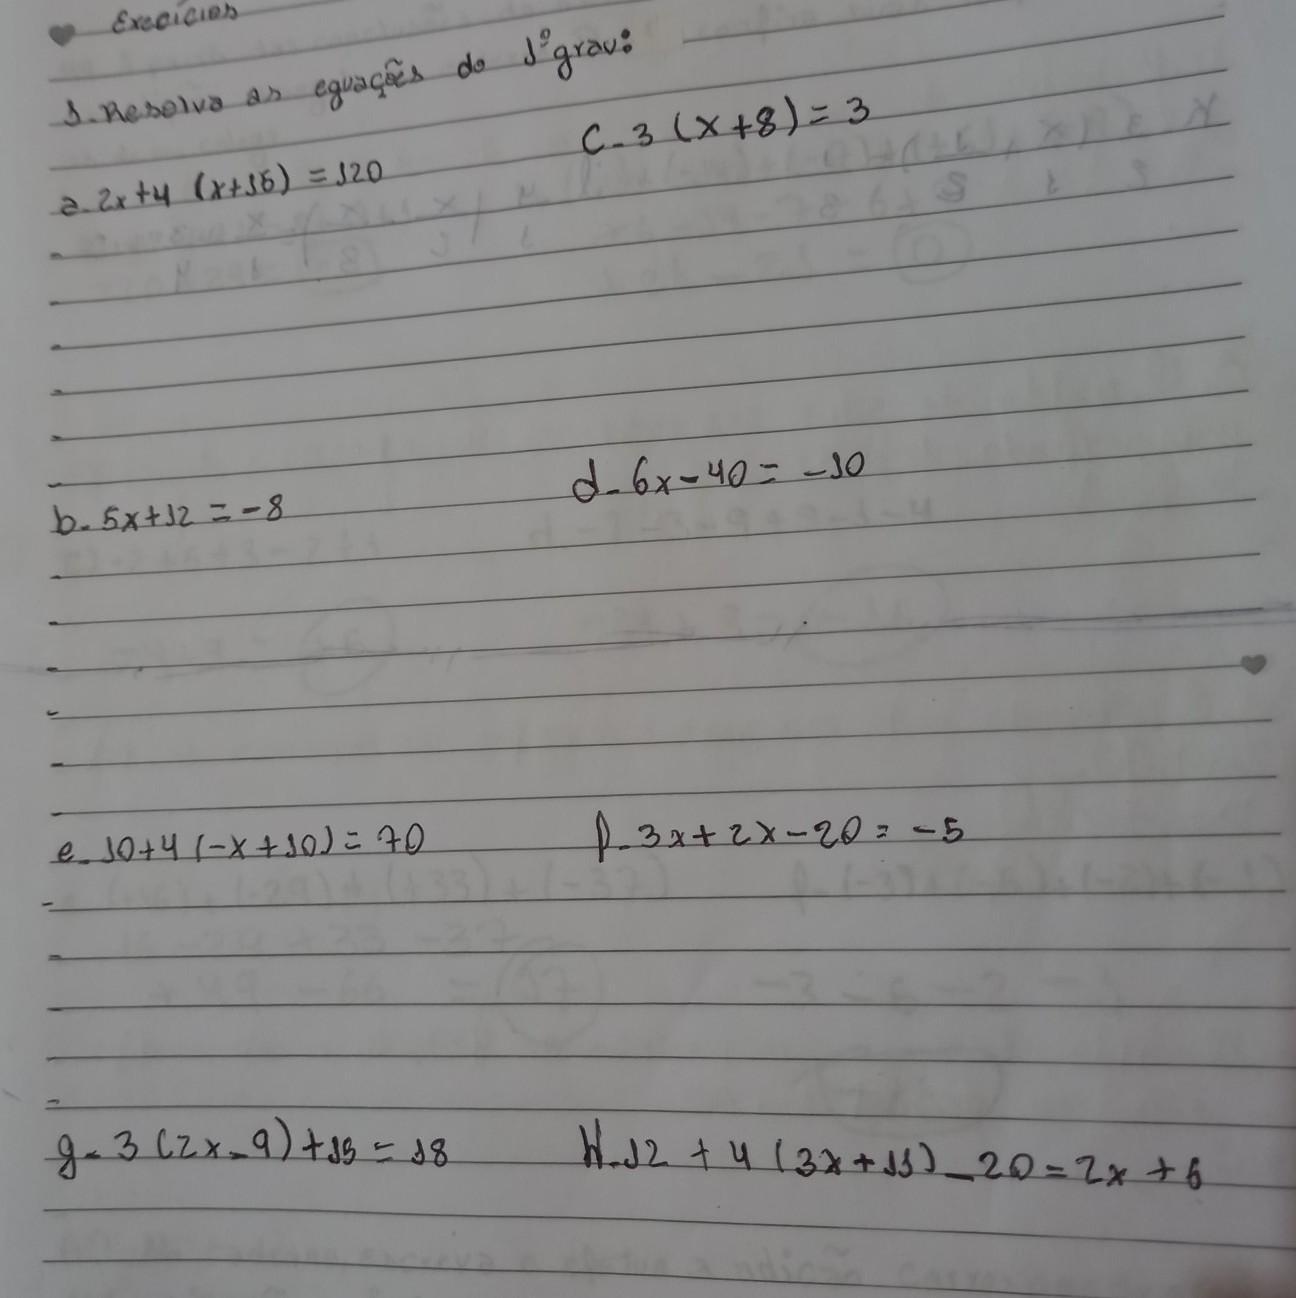 Exercícios
1. Resolva as equações do 1º grau:
a. 2x+4 (x+15) = 120
C. 3 (x+8) = 3
b. 5x+12 = -8
d. 6x-40 = -10
e. 10+4 (-x+10) = 70
f. 3x+2x-20 = -5
g. 3 (2x-9) +15 = 18
H. 12 + 4 (3x+11) - 20 = 2x + 6